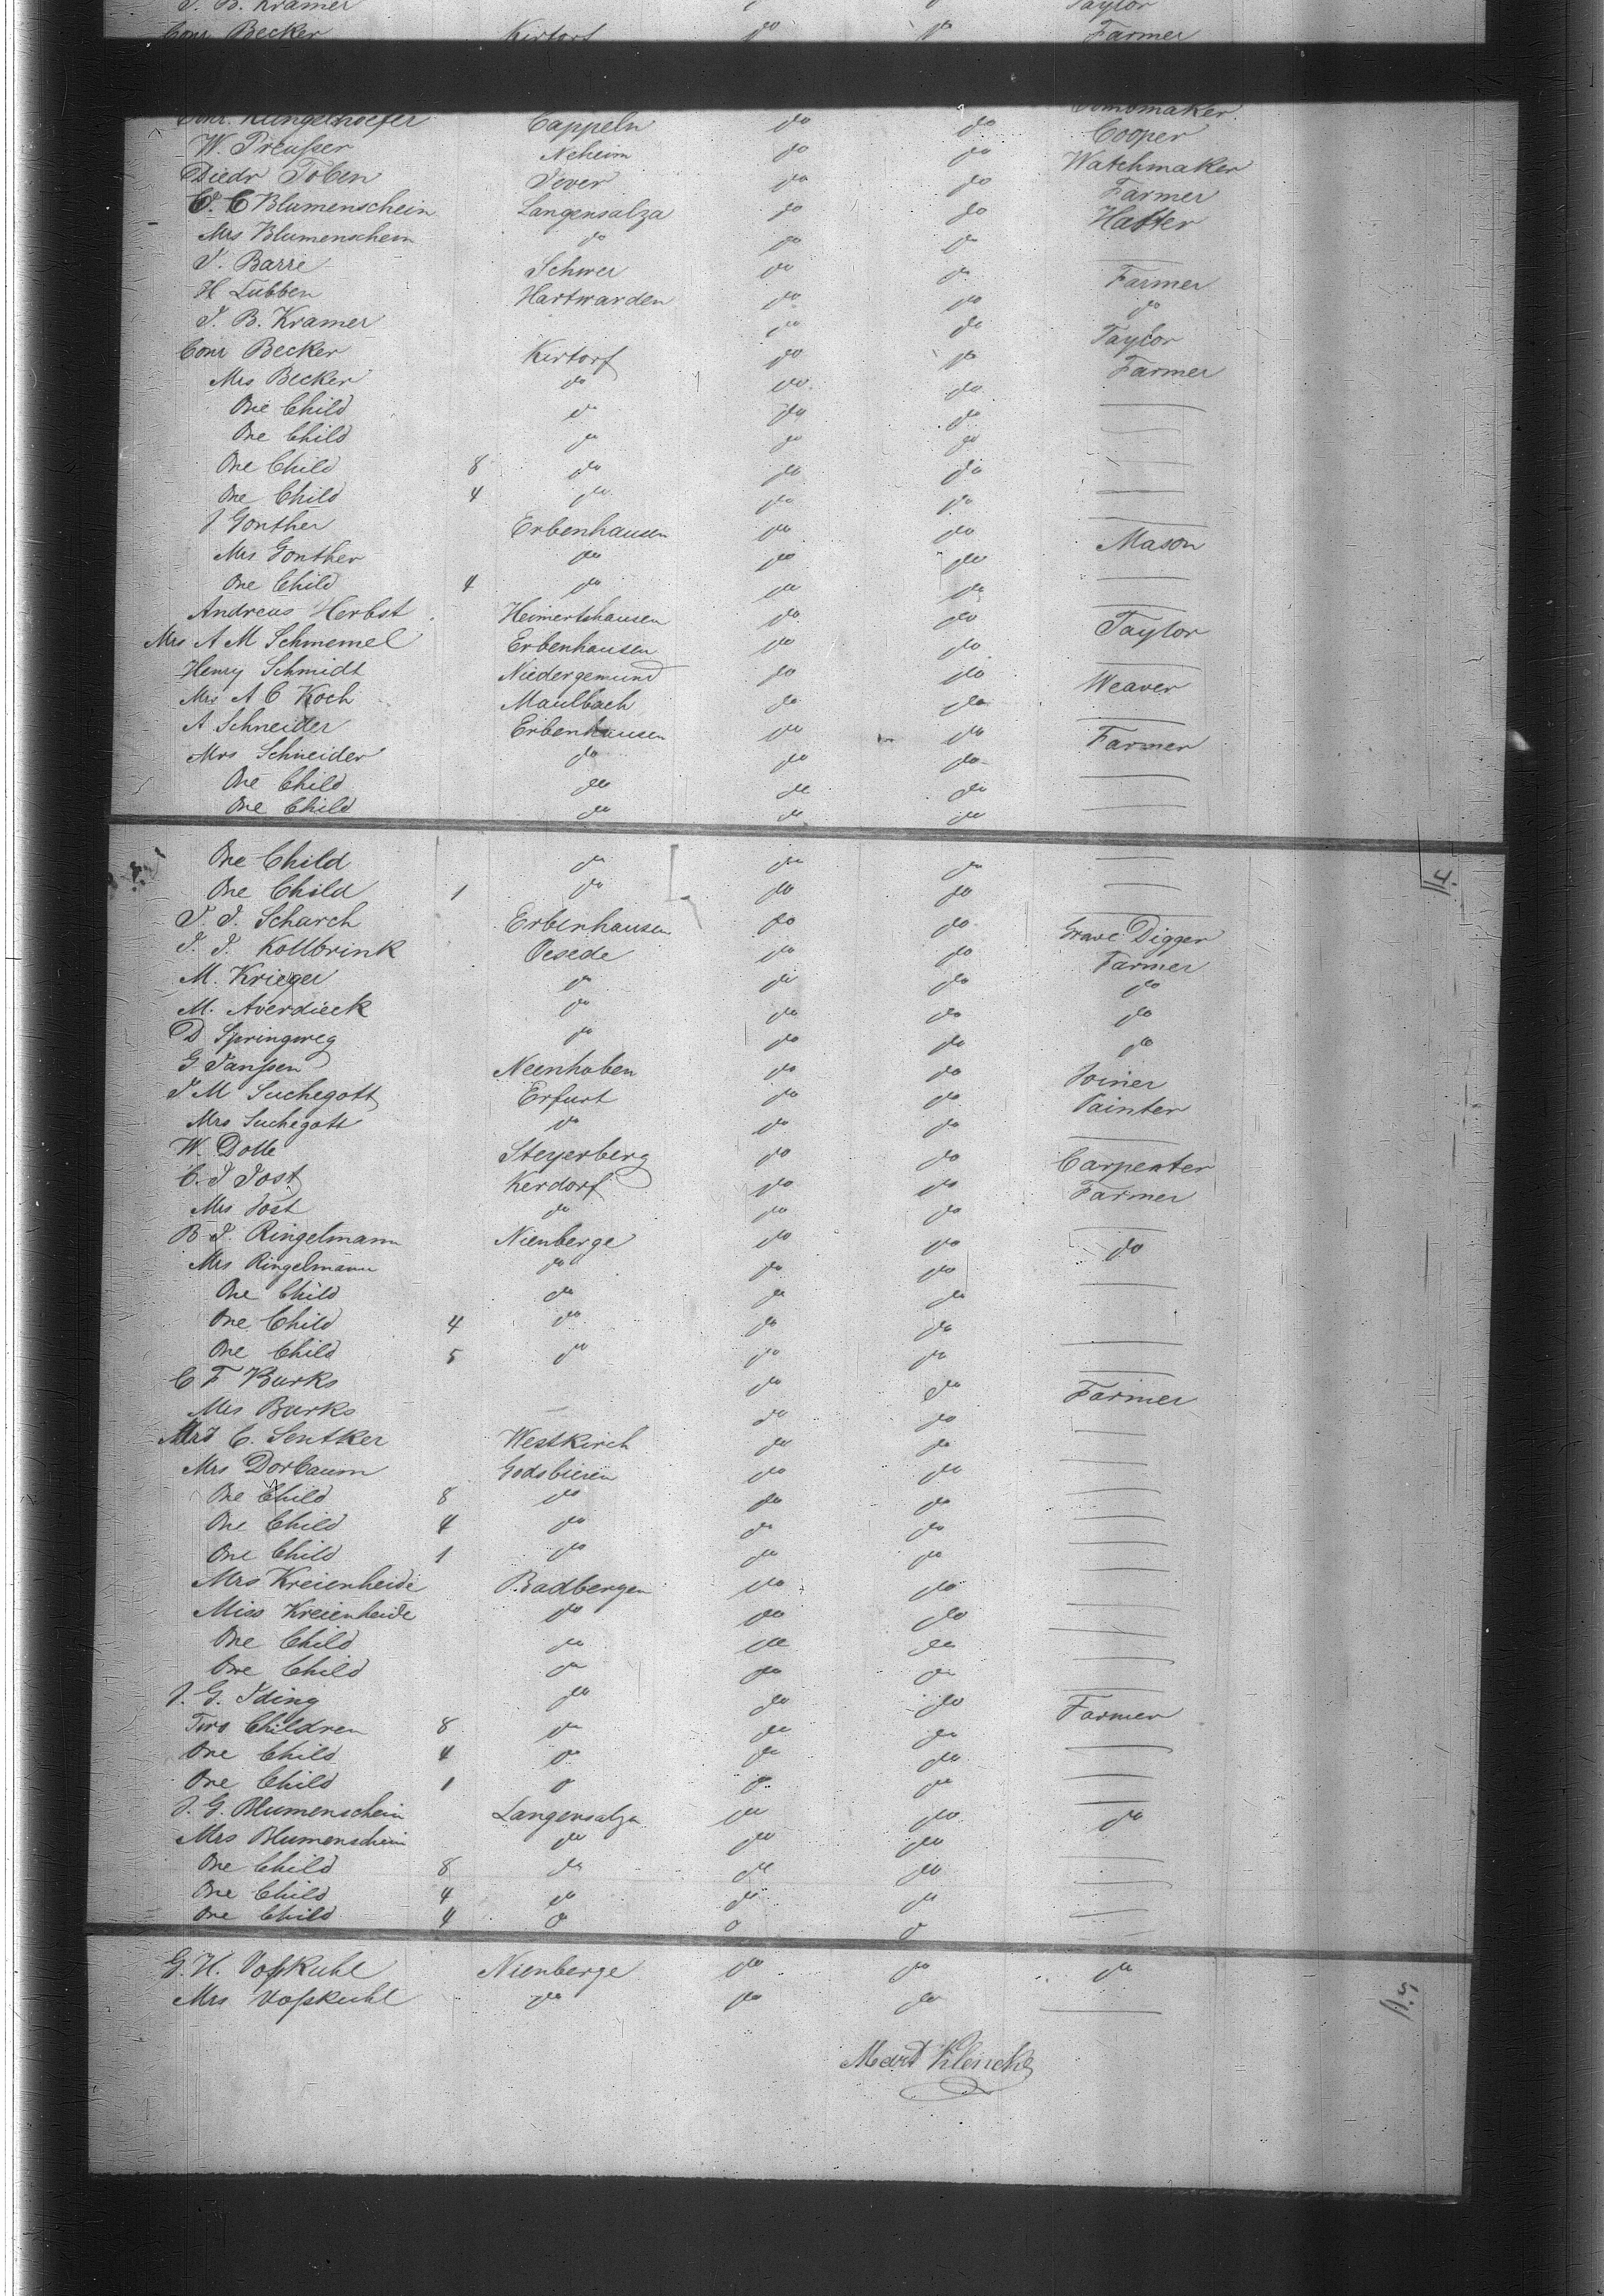 J. B. Kramer do do Taylor
Conr Becker Kirtorf do do Farmer
Conr. Klingelhoefer Cappeln do do
W. Preußer Neheim do do Cooper
Diedr Toben Jever do do Watchmaker
C. C Blumenschein Langensalza do do Farmer
Mrs Blumenschein do do do Hatter
J. Barre Schwei do do
H Lübben Hartwarden do do Farmer
J. B. Kramer do do do
Conr Becker Kirtorf do do Taylor
Mrs Becker do do do Farmer
One Child do do do
One Child do do do
One Child 8 do do do
One Child 4 do do do
J Gonther Erbenhausen do do Mason
Mrs Gonther do do do
One Child 4 do do do
Andreas Herbst Heimertshausen do do Taylor
Mrs A M Schmemel Erbenhausen do do
Henry Schmidt Niedergemund do do Weaver
Mrs A C Koch Maulbach do do
A Schneider Erbenhausen do do Farmer
Mrs Schneider do do do
One Child do do do
One Child do do do
One Child do do do 4.
One Child 1 do do do
J. J. Scharch Erbenhausen do do Grave Digger
J. J. Kollbrink Oesede do do Farmer
M. Krieger do do do do
M. Averdieck do do do do
D Springweg do do do do
G Janßen Neenhoben do do Joiner
J M Suchegott Erfurt do do Painter
Mrs Suchegott do do do
W. Dolle Steyerberg do do Carpenter
C. J Jost Kerdorf do do Farmer
Mrs Jost do do do
B J. Ringelmann Nienberge do do do
Mrs Ringelmann do do do
One Child do do do
One Child 4 do do do
One Child 5 do do do
C F Burks do do Farmer
Mrs Burks do do
Mrs C. Sentker Westkirch do do
Mrs Dorbaum Godsbieren do do
One Child 8 do do do
One Child 4 do do do
One Child 1 do do do
Mrs Kreienheide Badbergen do do
Miss Kreienheide do do do
One Child do do do
One Child do do do
J. G. Iding do do do Farmer
Two Children 8 do do do
One Child 4 do do do
One Child 1 do do do
J. G. Blumenschein Langensalza do do do
Mrs Blumenschein do do do
One Child 8 do do do
One Child 4 do do do
One Child 4 do do do
G. H. Voßkuhl Nienberge do do do 5.
Mrs Voßkuhl do do do
Mart Klencke